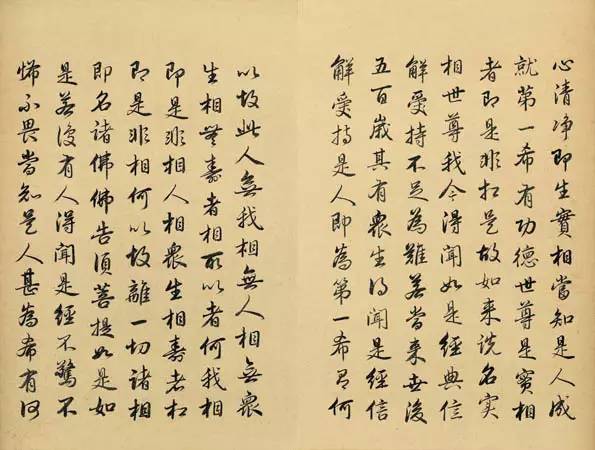 心清净即生實相當知是人成
就第一希有功德世尊是實相
者即是非相是故如来說名實
相世尊我今得聞如是經典信
解受持不足為難若當来世後
五百歲其有衆生得聞是經信
解受持是人即為第一希有何
以故此人無我相無人相無衆
生相無壽者相所以者何我相
即是非相人相衆生相壽者相
即是非相何以故離一切諸相
即名諸佛佛告須菩提如是如
是若復有人得聞是經不驚不
怖不畏當知是人甚為希有何